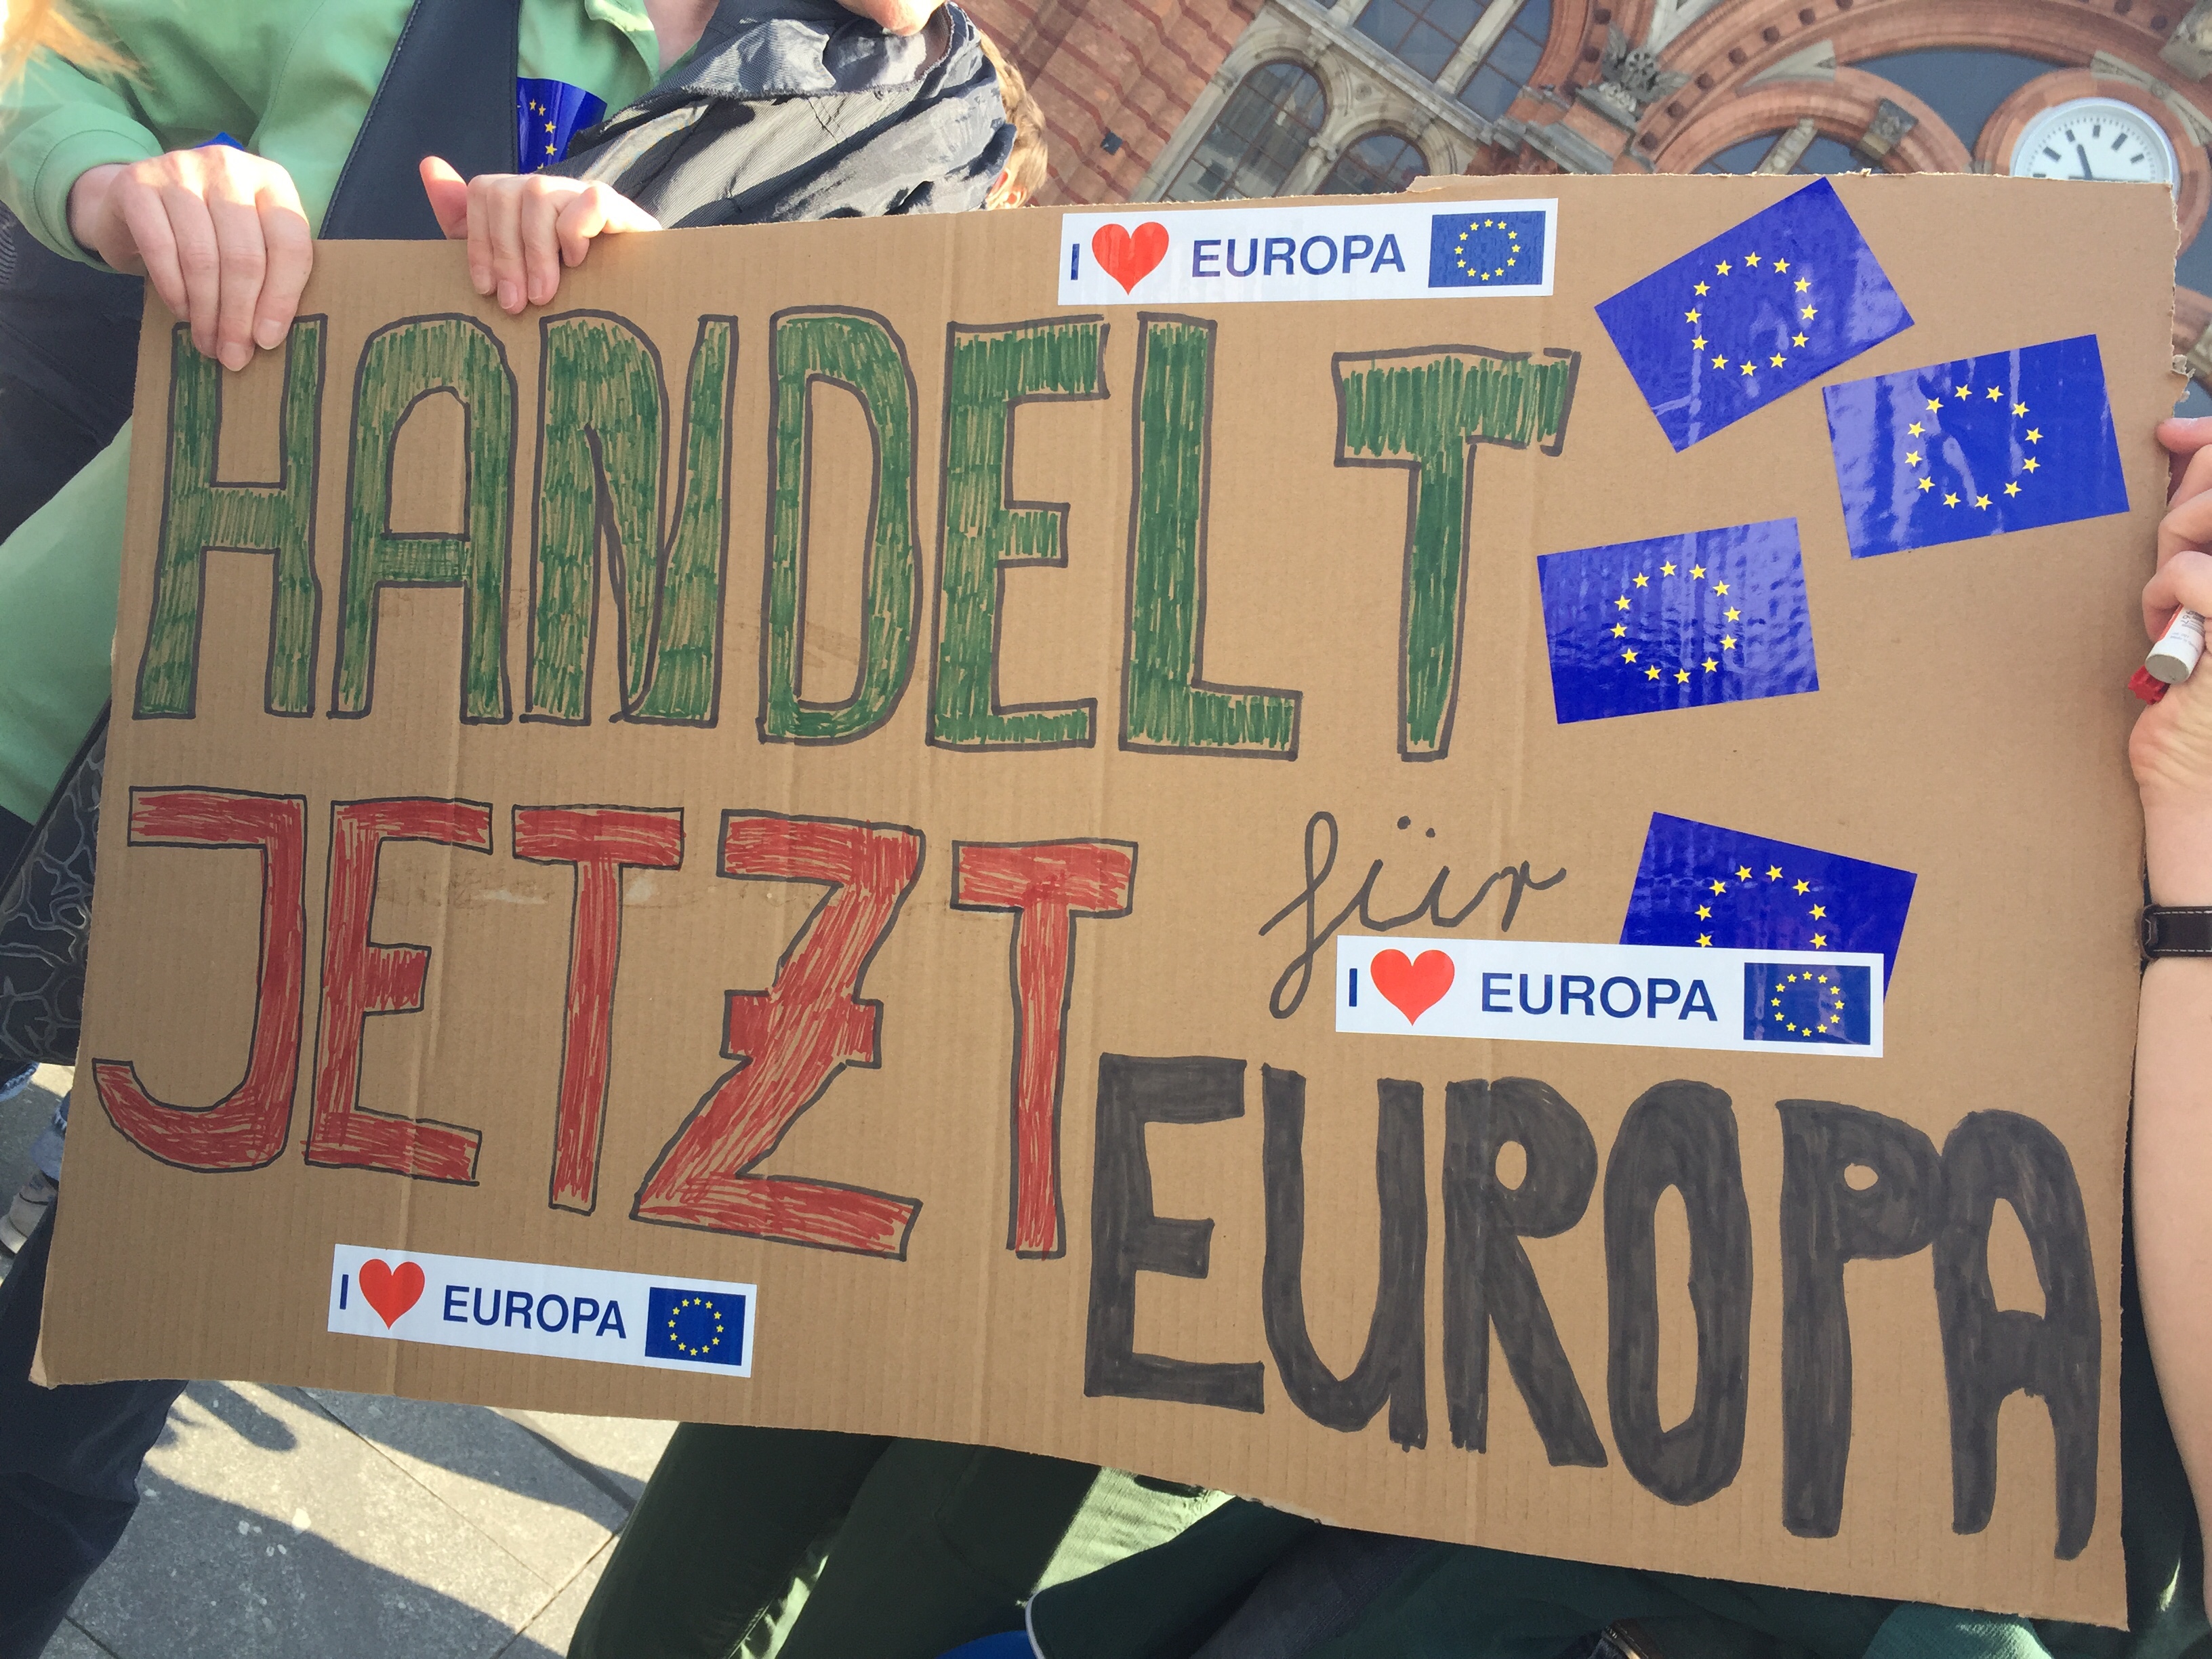 I ❤ EUROPA
HANDELT
JETZT für
I ❤ EUROPA
EUROPA
I ❤ EUROPA